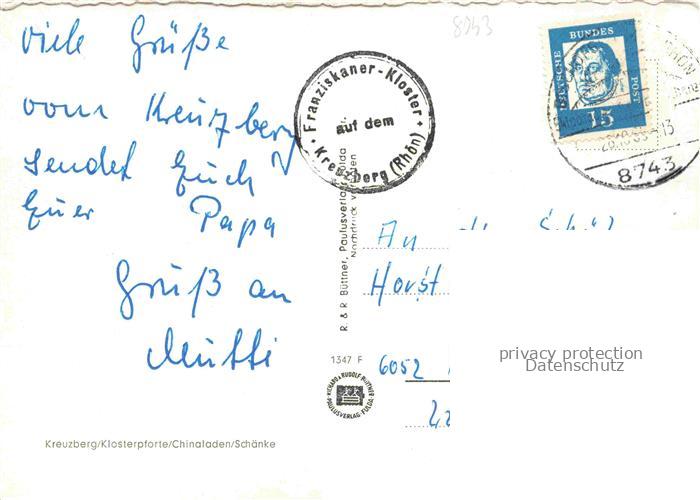 viele Grüße
vom Kreuzberg
sendet Euch
Euer Papa
Gruß an
Mutti
Kreuzberg/Klosterpforte/Chinaladen/Schänke
Franziskaner-Kloster
auf dem
Kreuzberg (Rhön)
R. & R. Büttner, Paulusverlag
Nachdruck
1347 F
RICHARD & RUDOLF BÜTTNER
PAULUSVERLAG · FULDA
8743
DEUTSCHE BUNDES POST
15
8743
An
Horst
6052
privacy protection
Datenschutz